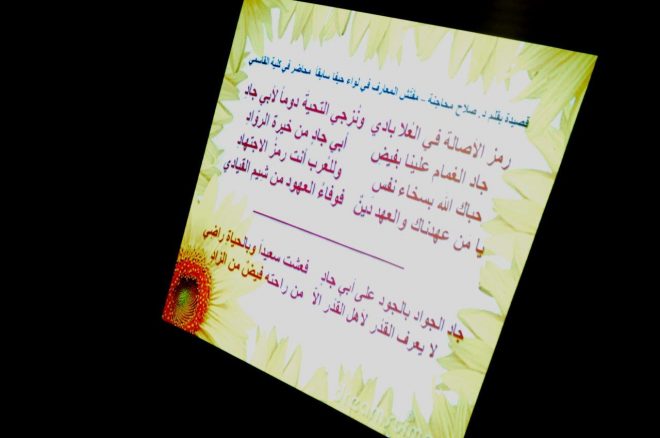 قصيدة بقلم د. صلاح محاجنة – مفتش المعارف في لواء حيفا سابقاً محاضر في كلية القاسمي
رمز الاصالة في العُلا بادي ونُزجي التحية دوماً لأبي جاد
جاد الغمام علينا بفيضٍ أبي جادٍ من خيرة الروّاد
حباك الله بسخاء نفس وللعُرب أنت رمزُ الاجتهاد
يا مَن عهدناك والعهد دَينٌ فوفاءُ العهود من شيم القيادي
جاد الجواد بالجود على أبي جاد فعشت سعيداً وبالحياة راضي
لا يعرف القدر لأهل القدر الا من راحته فيضٌ من الزاد